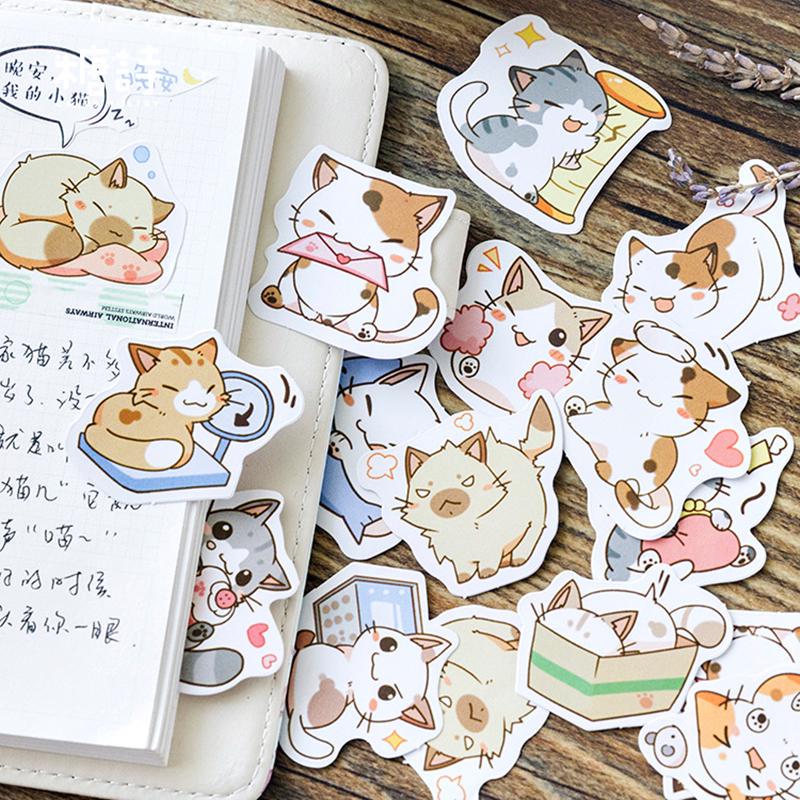 糖詩
晚安
晚安，
我的小猫。
zZz
INTERNATIONAL AIRWAYS
WORLD AIRWAYS SYSTEM
家猫差不多
就是
猫儿"
声"喵~"
的时候
看你一眼.